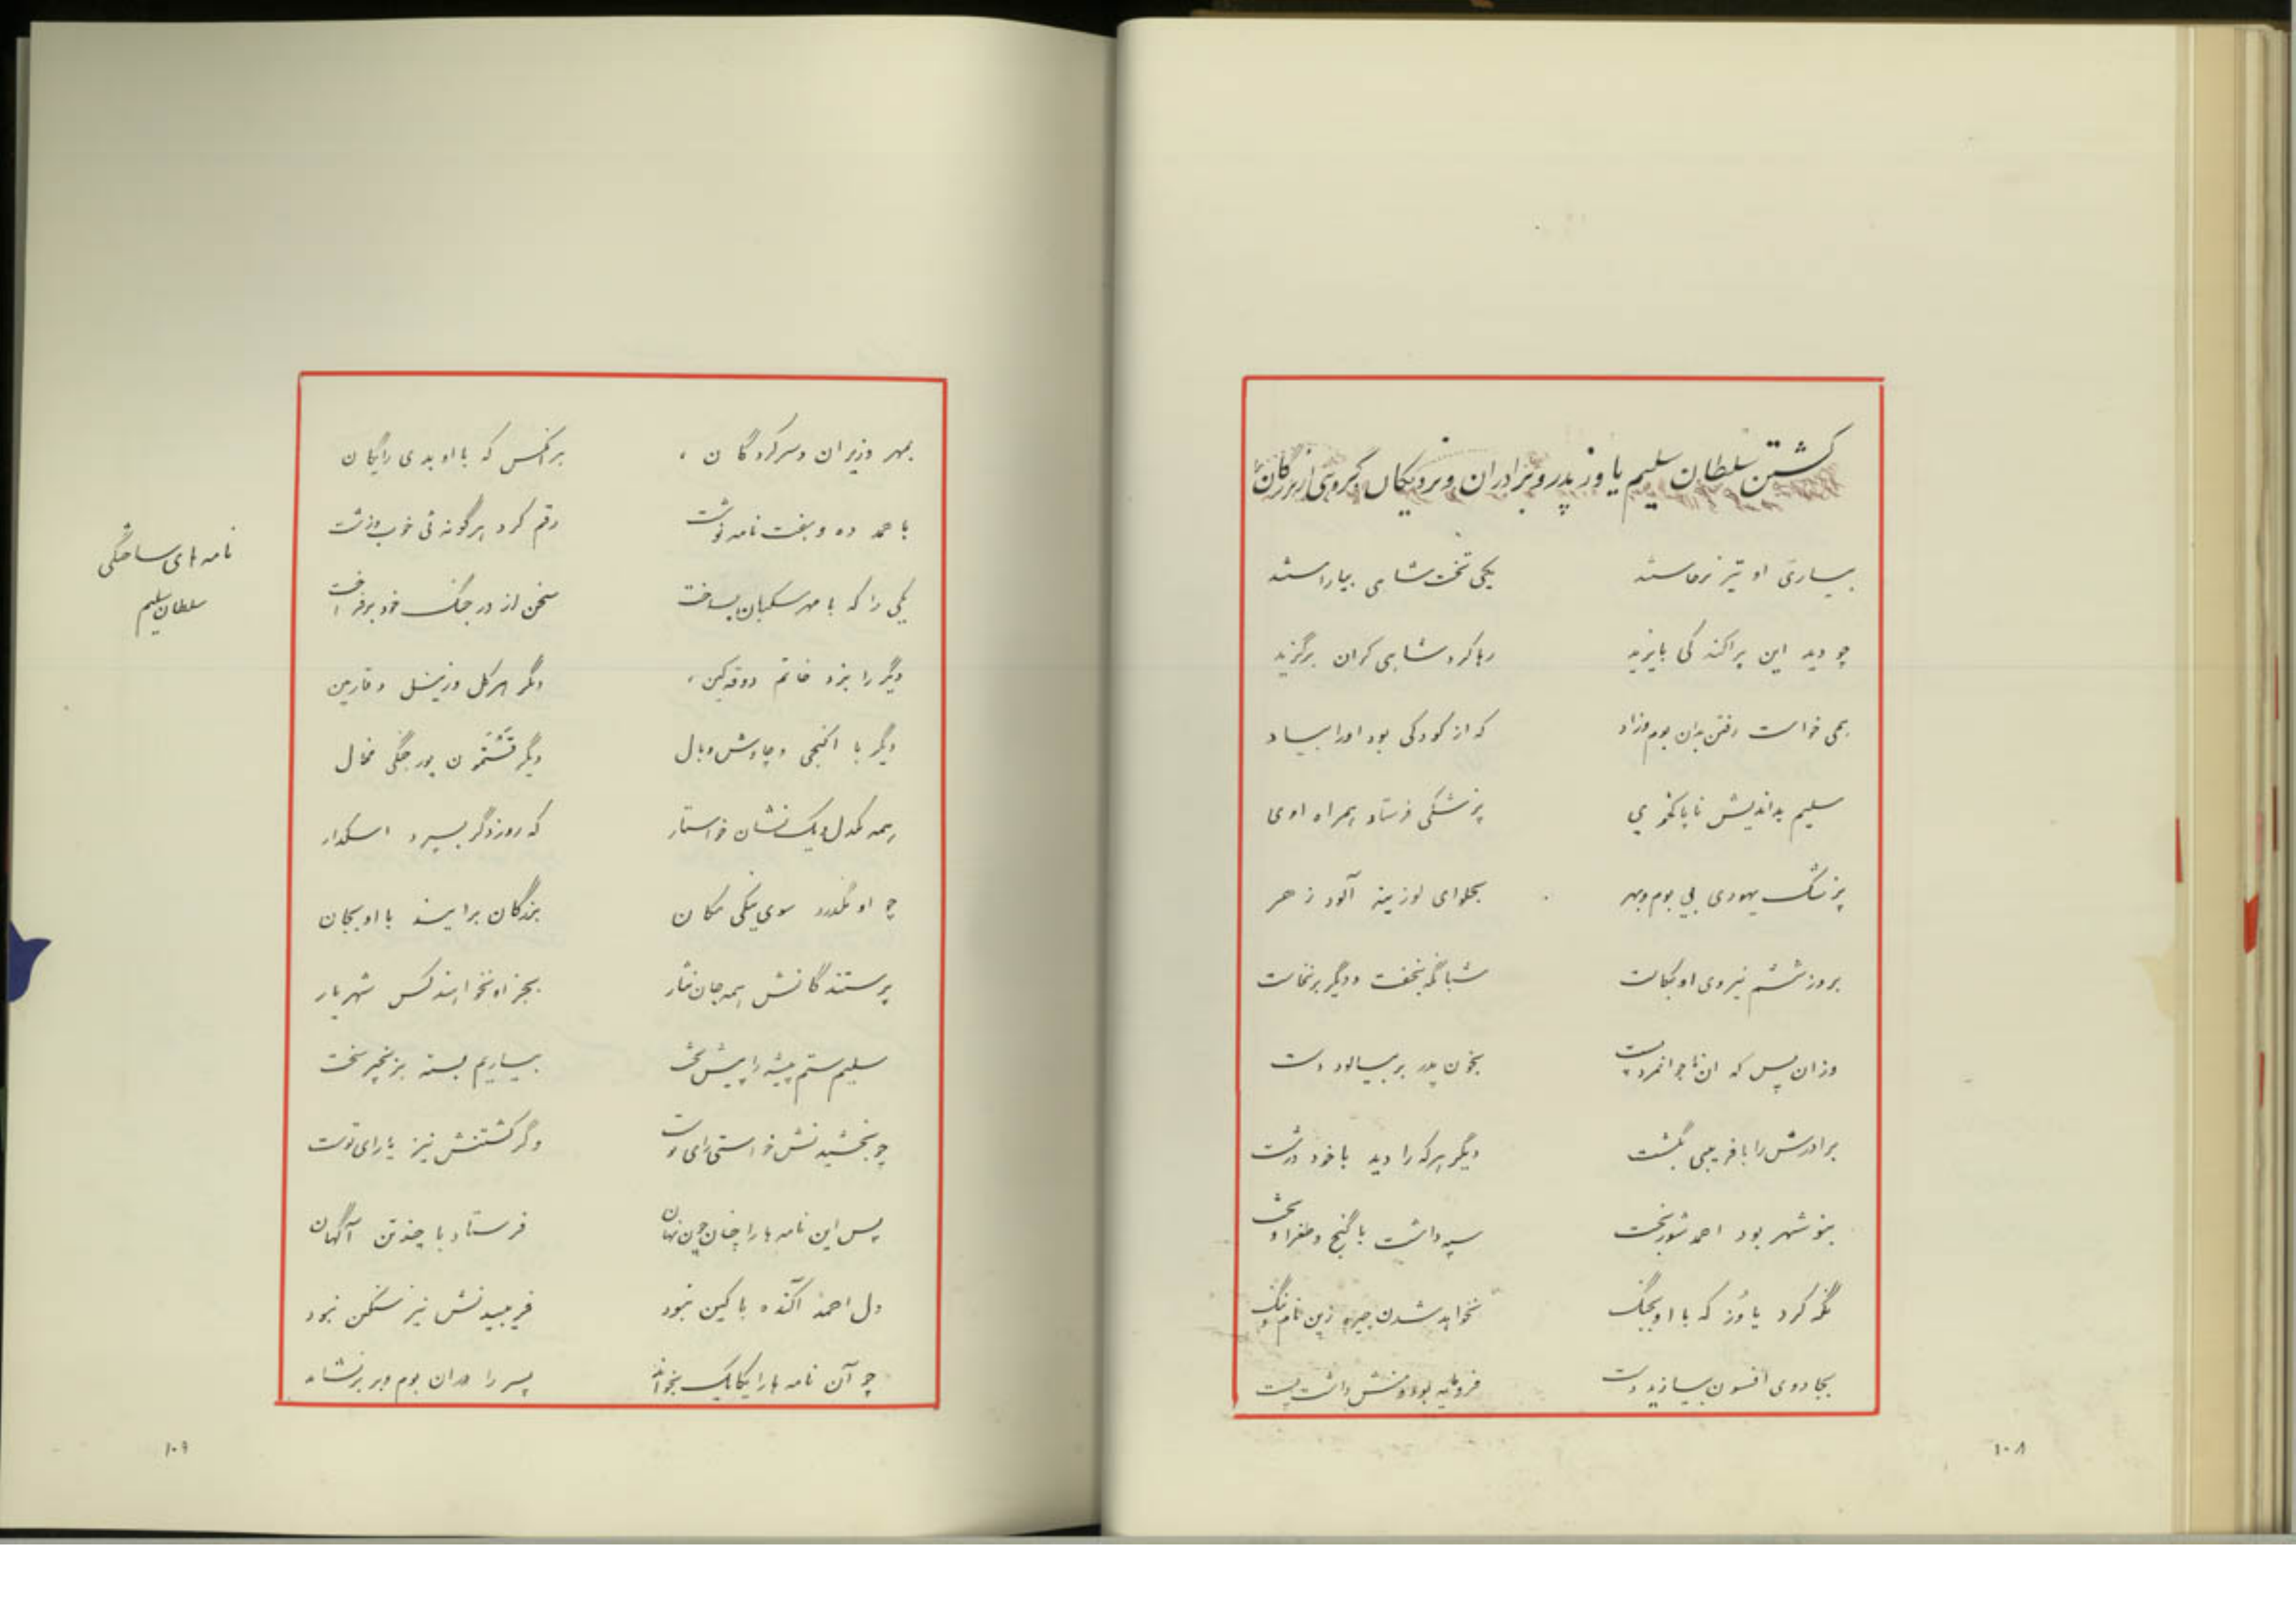 کشتن سلطان سلیم یاوز پدر و برادران و نزدیکان و گروهی از بزرگان
بیاری او نیز برخاستند یکی تخت شاهی بیاراستند
چو دید این پراکندگی بایزید رها کرد شاهی کران برگزید
همی خواست رفتن بدان بوم و زاد که از کودکی بود او را بیاد
سلیم بداندیش ناپاکخوی پزشکی فرستاد همراه اوی
پزشک یهودی بی بوم و بهر بحلوای لوزینه آلود زهر
بروز ششم نیروی او بکاست شبانگه بخفت و دیگر برنخاست
وزان پس که ان ناجوانمرد پست بخون پدر بر بیالود دست
برادرش را با فریبی بکشت دیگر هرکه را دید با خود درشت
بنو شهر بود احمد شوربخت سپه داشت با گنج و طغرا و تخت
نگه کرد یاوز که با او بجنگ نخواهد شدن چیره زین نام و ننگ
بجادوی افسون بیازید دست فرومایه بود و منش داشت پست
۱۰۸
بمهر وزیران و سرکردگان برانکس که با او بدی رایگان
باحمد ده و هفت نامه نوشت رقم کرد هرگونه ئی خوب و زشت
یکی را که با مهر سکبان بساخت سخن از در جنگ خود برفراخت
دیگر را بزد خاتم دوقه کین دگر
دیگر با اکنجی و چاوش و بال دیگر
همه یکدل و یک نشان خواستار که روز دگر بسپرد اسکدار
چو او بگذرد سوی نیکی مکان بزرگان برایند با او بجان
پرستندگانش همه جان نثار بجز او نخواهند کس شهریار
سلیم ستم پیشه را پیش تخت بیاریم بسته بزنجیر سخت
چو بخشیدنش خواستی رای تو است وگر کشتنش نیز یارای تو است
پس این نامه ها را چنان چون نهان فرستاد با چند تن آگهان
دل احمد آکنده با کین نبود فریبیدنش نیز سنگین نبود
چو آن نامه ها را یکایک بخواند پسر را دران بوم و بر برنشاند
نامه های ساختگی
سلطان سلیم
۱۰۹